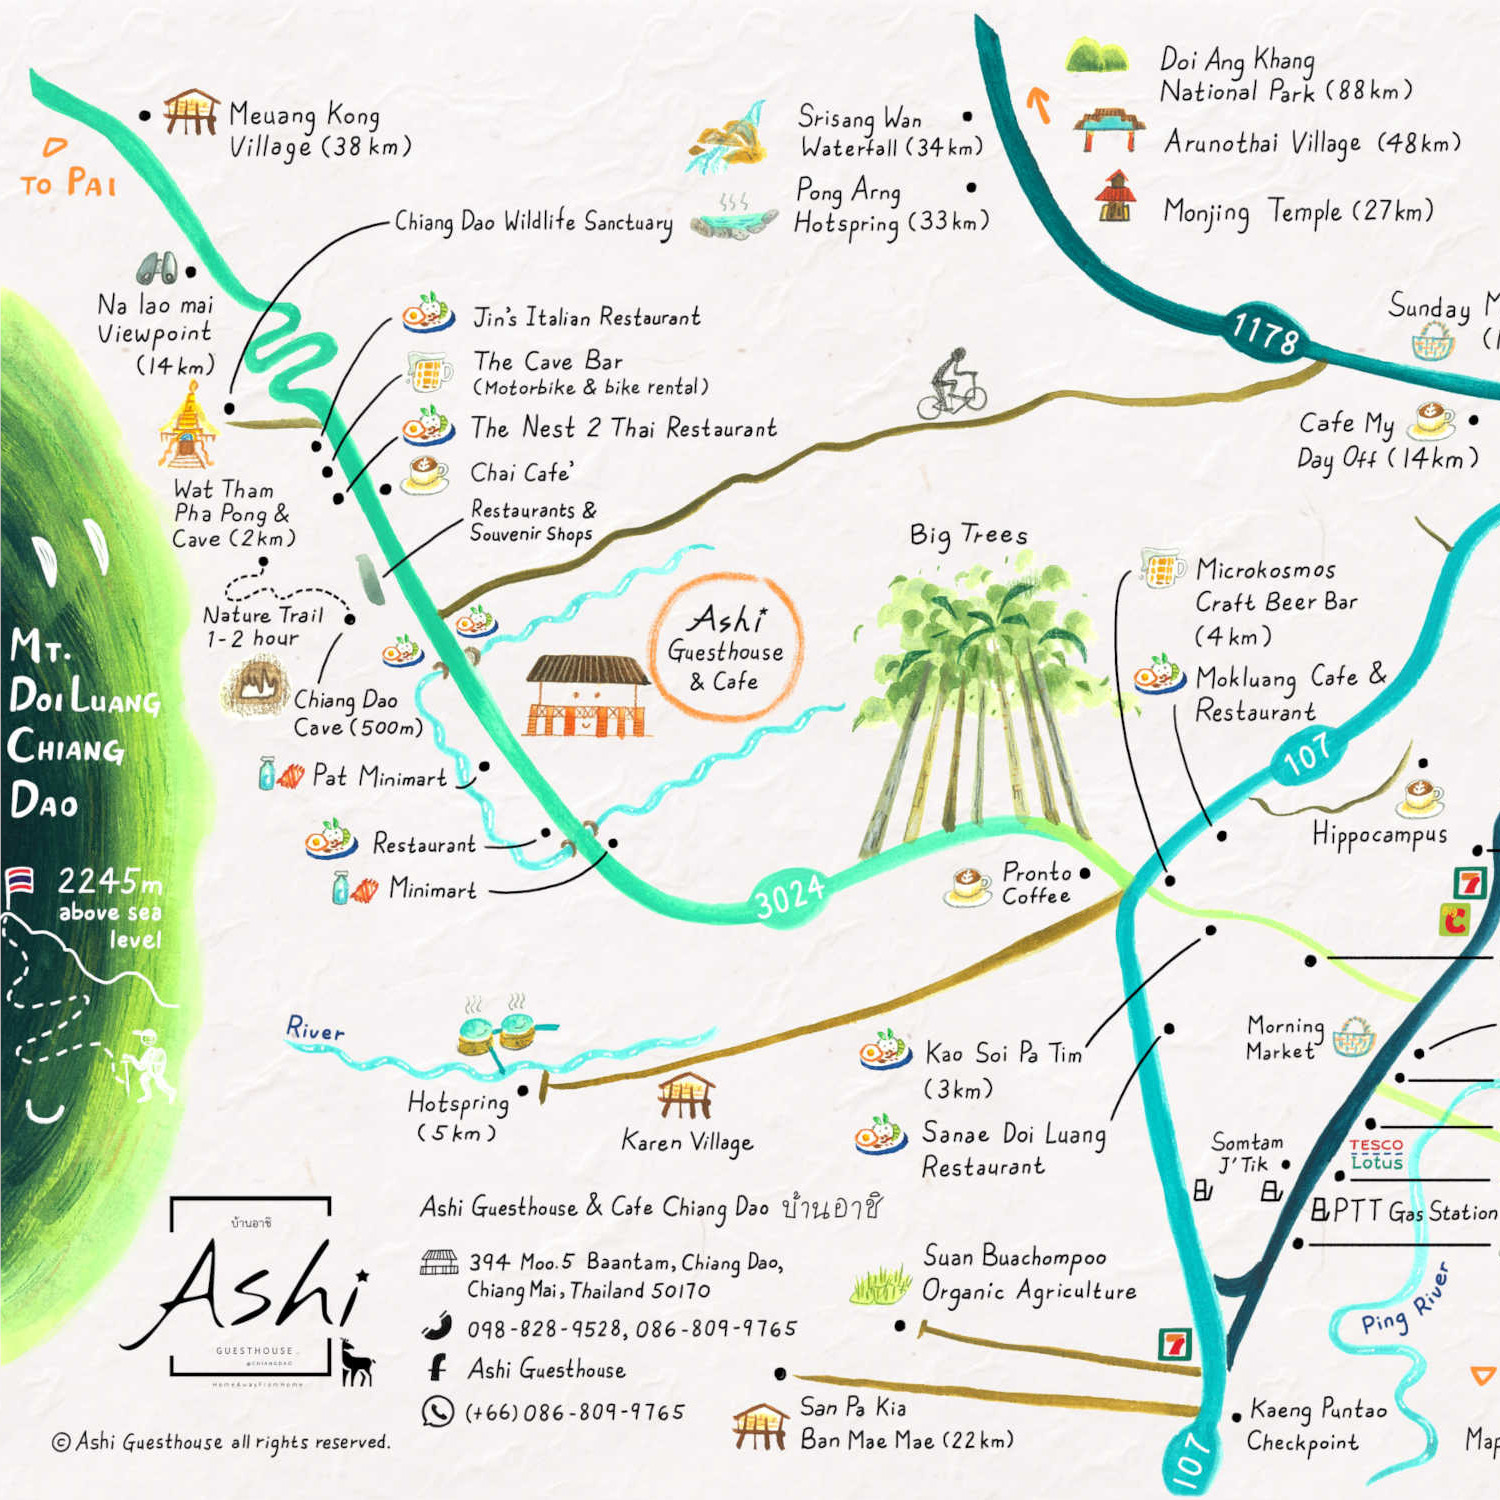 Meuang Kong
Village (38 km)
TO PAI
Srisang Wan
Waterfall (34km)
Pong Arng
Hotspring (33km)
Doi Ang Khang
National Park (88km)
Arunothai Village (48km)
Monjing Temple (27km)
Chiang Dao Wildlife Sanctuary
Na lao mai
Viewpoint
(14km)
Jin's Italian Restaurant
The Cave Bar
(Motorbike & bike rental)
The Nest 2 Thai Restaurant
Chai Cafe'
Restaurants &
Souvenir Shops
1178
Sunday M
(1
Cafe My
Day Off (14km)
Wat Tham
Pha Pong &
Cave (2km)
Nature Trail
1-2 hour
Chiang Dao
Cave (500m)
Ashi
Guesthouse
& Cafe
Big Trees
Microkosmos
Craft Beer Bar
(4km)
Mokluang Cafe &
Restaurant
107
Hippocampus
7
C
MT.
DOI LUANG
CHIANG
DAO
2245m
above sea
level
Pat Minimart
Restaurant
Minimart
3024
Pronto
Coffee
River
Hotspring
(5km)
Karen Village
Kao Soi Pa Tim
(3km)
Sanae Doi Luang
Restaurant
Morning
Market
Somtam
J'Tik
TESCO
Lotus
PTT Gas Station
Ping River
บ้านอาชิ
Ashi
GUESTHOUSE
@CHIANGDAO
HomeAwayFromHome
Ashi Guesthouse & Cafe Chiang Dao บ้านอาชิ
394 Moo.5 Baantam, Chiang Dao,
Chiang Mai, Thailand 50170
098-828-9528, 086-809-9765
Ashi Guesthouse
(+66)086-809-9765
© Ashi Guesthouse all rights reserved.
Suan Buachompoo
Organic Agriculture
7
San Pa Kia
Ban Mae Mae (22km)
107
Kaeng Puntao
Checkpoint
Map